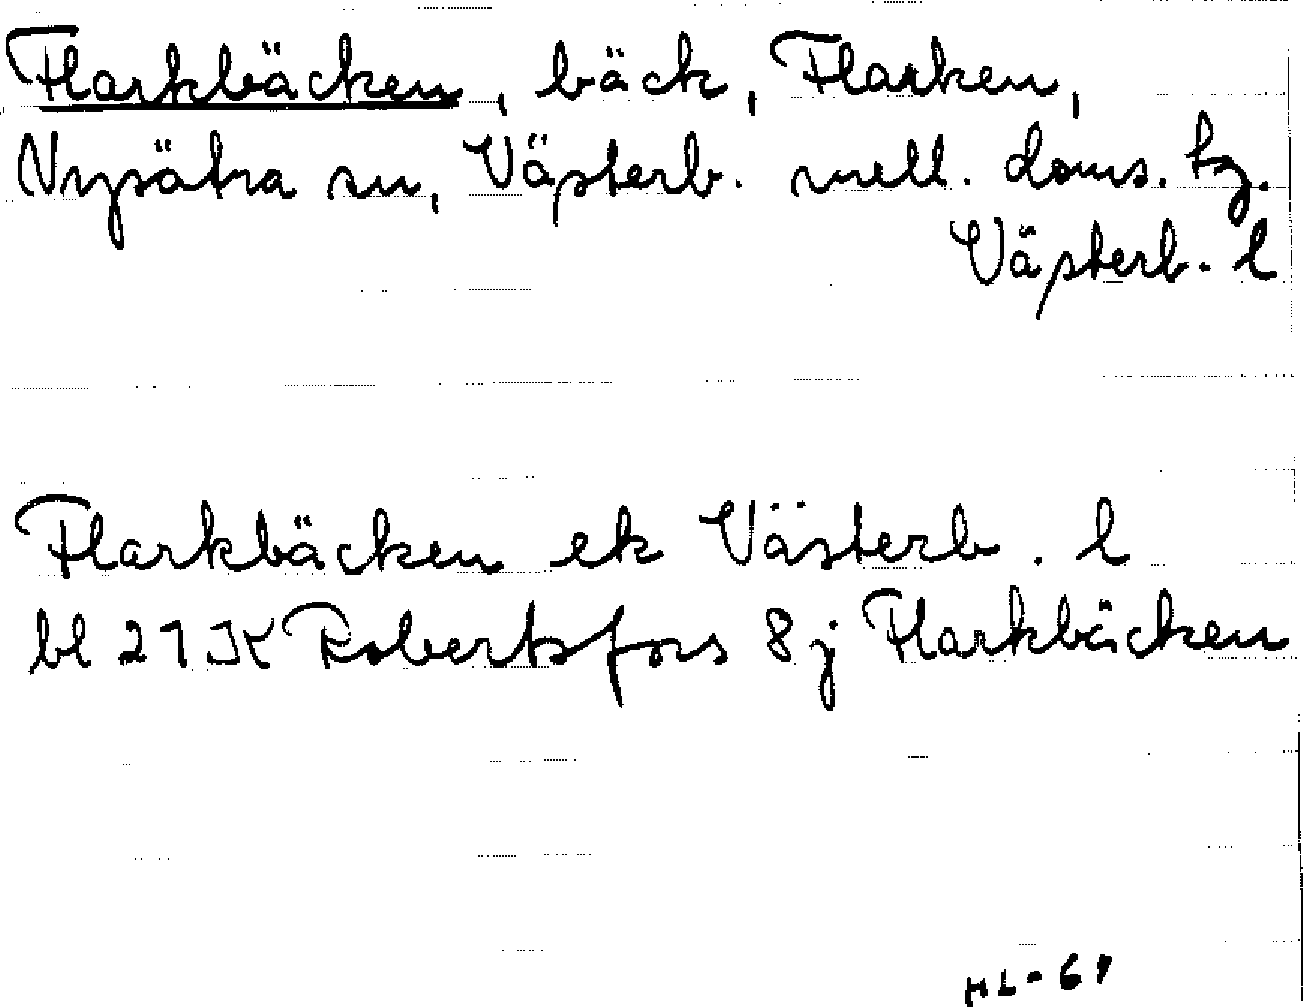 Flarkbäcken, bäck, Flarken,
Nysätra sn, Västerb. mell. doms. tg.
Västerb. l
Flarkbäcken ek Västerb. l
bl 21K Robertsfors 8j Flarkbäcken
ML-61